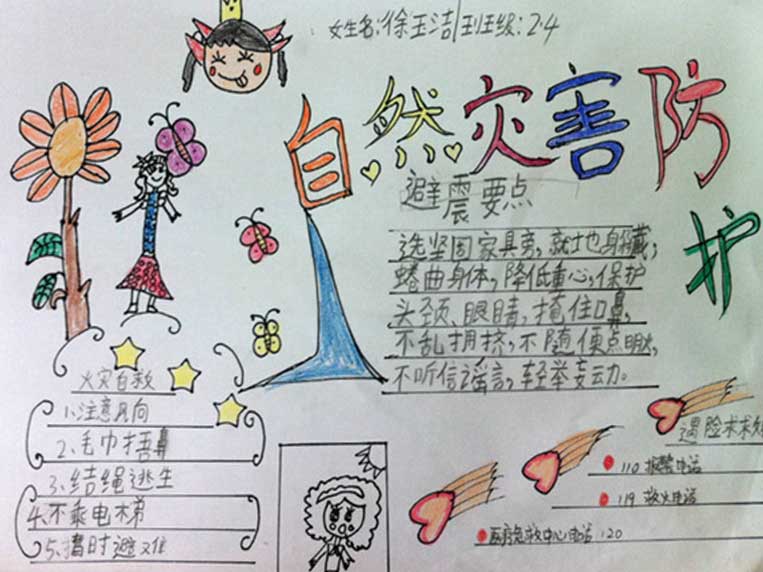 女生名:徐玉洁 班级:2.4
自然灾害防护
避震要点
选坚固家具旁,就地身藏,
蜷曲身体,降低重心,保护
头颈、眼睛,掩住口鼻,
不乱拥挤,不随便点明火,
不听信谣言,轻举妄动。
火灾自救
1.注意风向
2.毛巾捂鼻
3.结绳逃生
4.不乘电梯
5.暂时避难
遇险求
110 报警电话
119 救火电话
医疗急救中心电话120